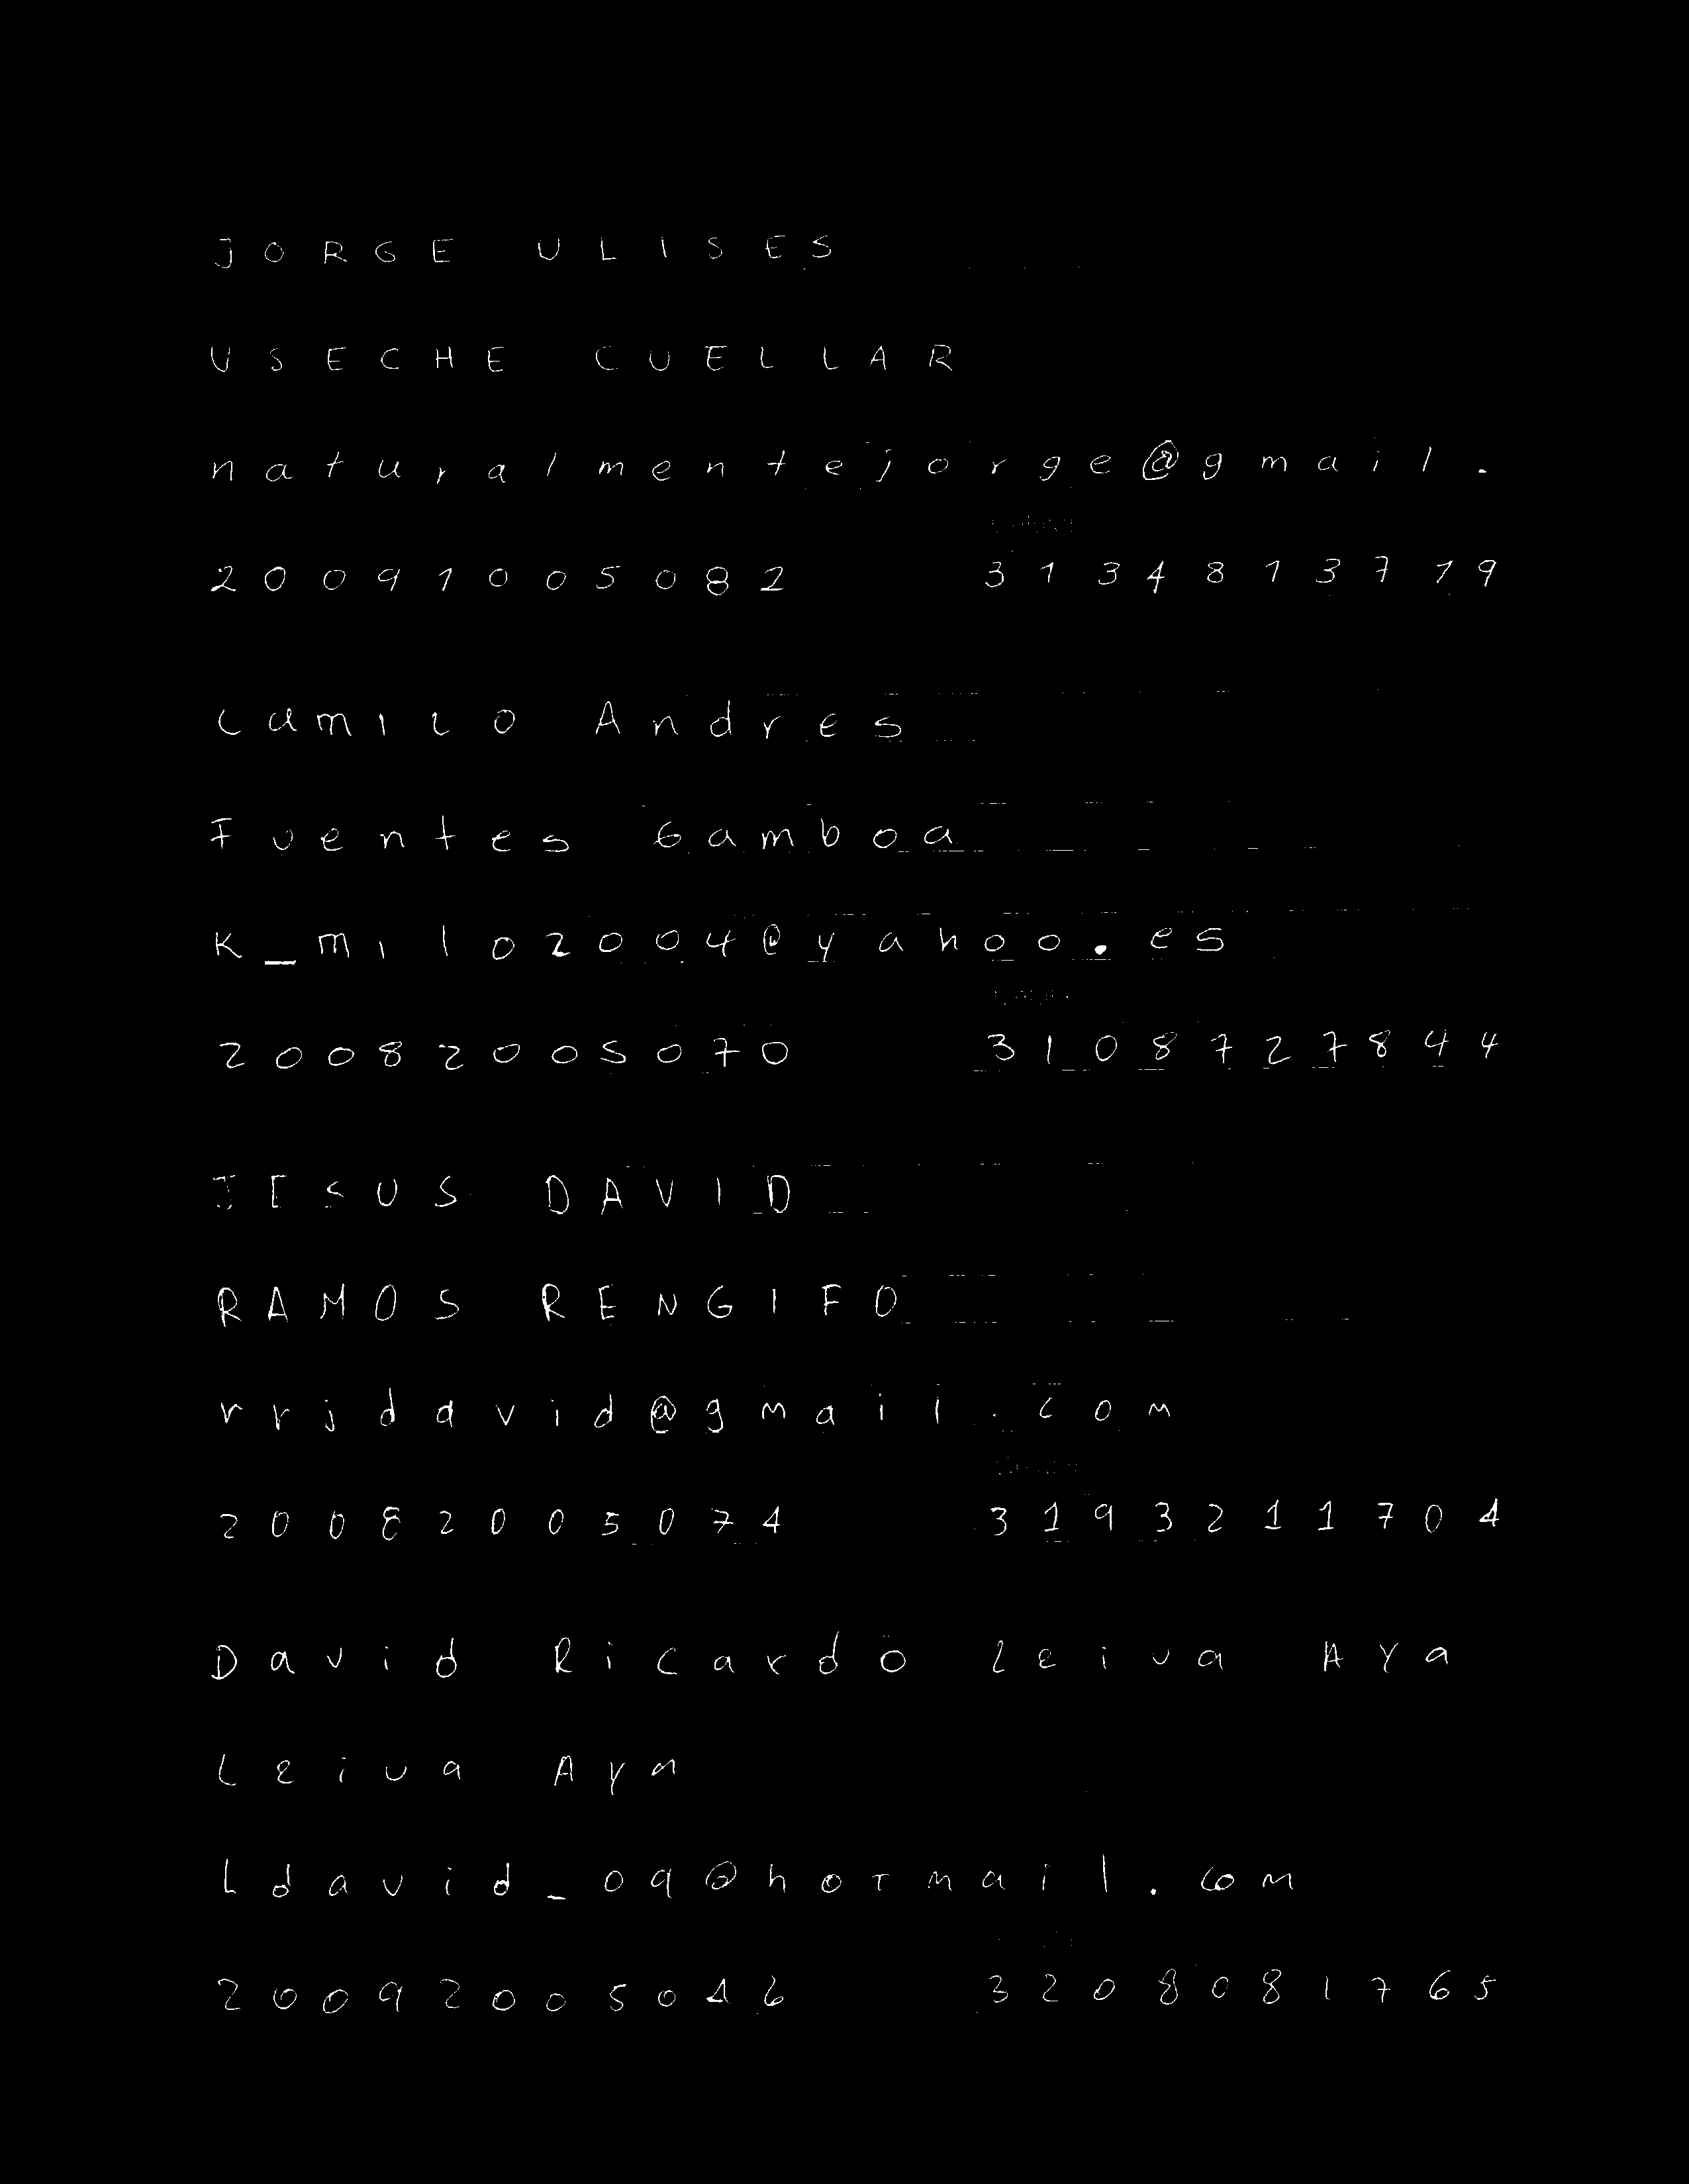 JORGE ULISES
USECHE CUELLAR
naturalmentejorge@gmail.
20091005082 3134813719
Camilo Andres
Fuentes Gamboa
K_milo2004@yahoo.es
20082005070 3108727844
JESUS DAVID
RAMOS RENGIFO
rrjdavid@gmail.com
20082005074 3193211704
David Ricardo Leiva Aya
Leiva Aya
Ldavid_09@hotmail.com
20092005046 3208081765